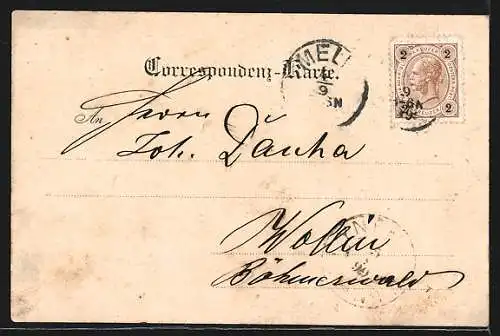 MEL
9
SN
2 2
9
2 2
Correspondenz-Karte.
An Herrn
Joh. Dauha
Wollin
Böhmerwald